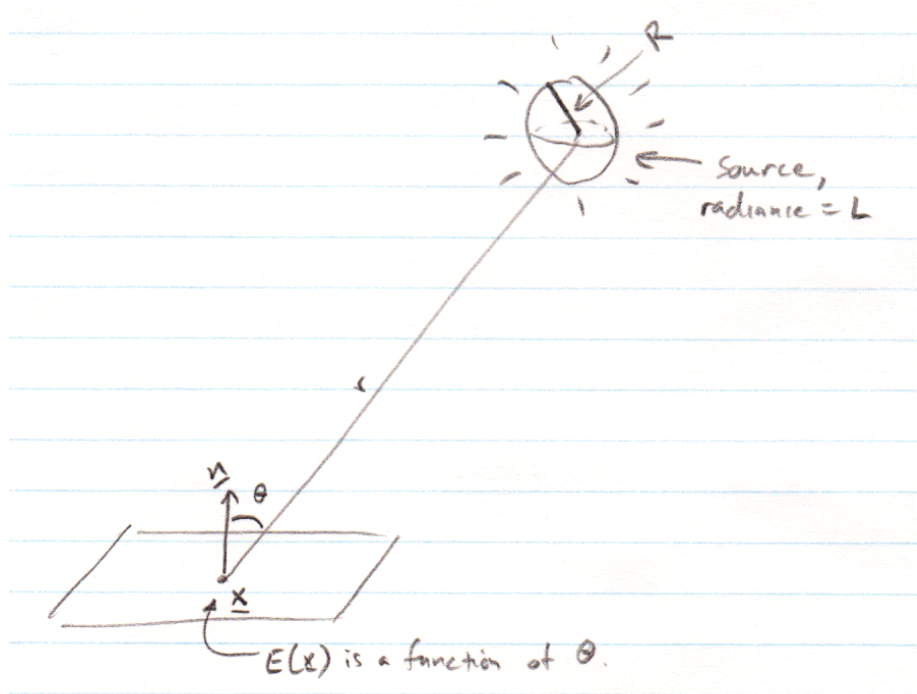 R
source,
radiance = L
r
n
θ
x
E(x) is a function of θ.